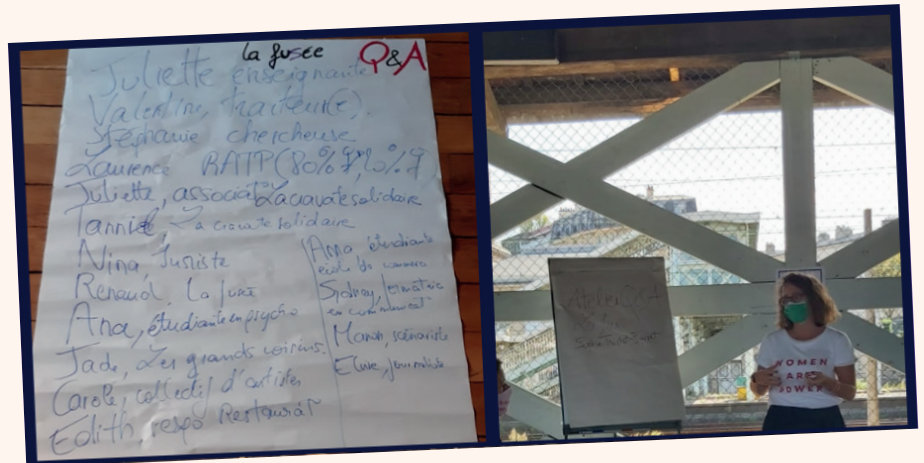 la fusée Q&A
Juliette enseignante
Valentine, traiteur(e).
Stéphanie chercheuse
Laurence RATP (80%
Juliette, associat° Lacravate solidaire
La cravate solidaire
Nina Juriste
Renaud, La
Ana, étudiante en psycho
Jade, Les grands voisins.
Carole, collectif d'artistes
Edith, respo Restaurat°
Anna étudiante
école de commerce
Sydney,
Manon, scénariste
journaliste
Atelier Q&A
WOMEN
ARE
POWER